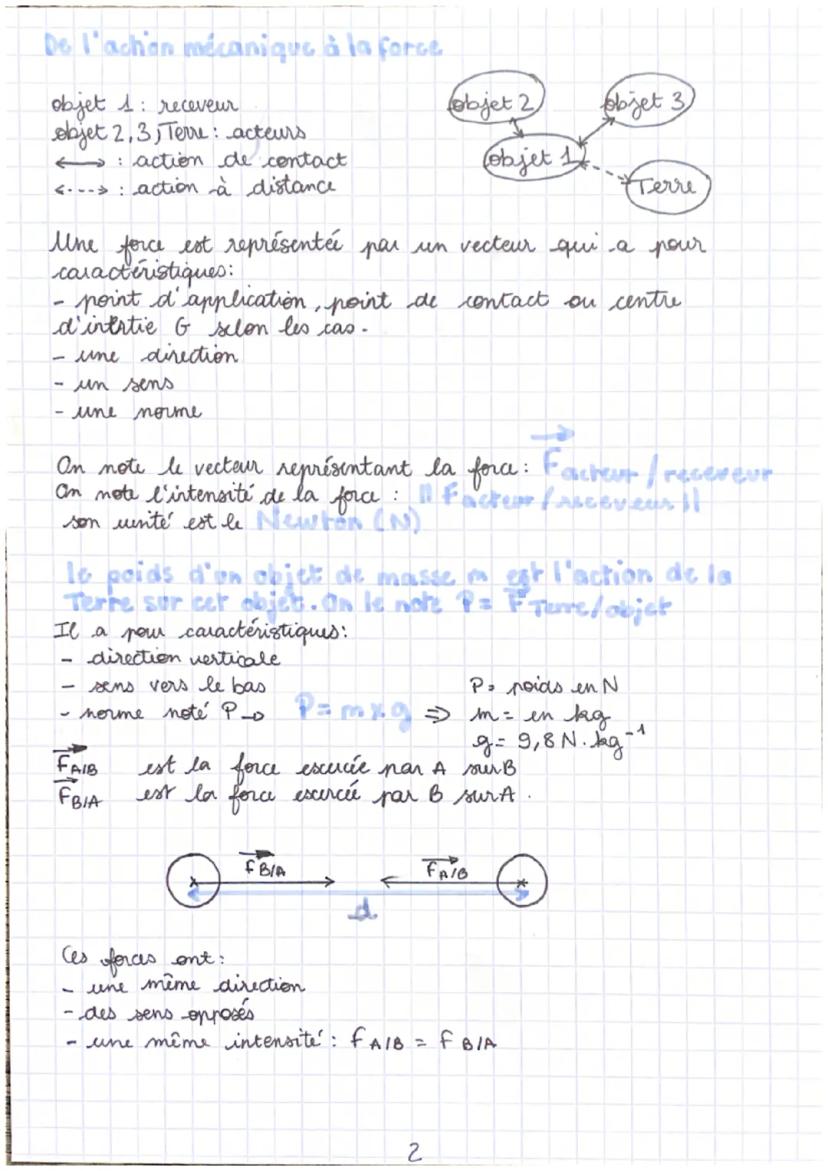 De l'action mécanique à la force
objet 1 : receveur
objet 2,3, Terre : acteurs
⟷ : action de contact
<---> : action à distance
objet 2
objet 3
objet 1
Terre
Une force est représentée par un vecteur qui a pour
caractéristiques:
- point d'application, point de contact ou centre
d'intertie G selon les cas.
- une direction
- un sens
- une norme
On note le vecteur représentant la force : F acteur / receveur
On note l'intensité de la force : || F acteur / receveur ||
son unité est le Newton (N)
le poids d'un objet de masse m est l'action de la
Terre sur cet objet. On le note P = F Terre/objet
Il a pour caractéristiques:
- direction verticale
- sens vers le bas
- norme noté P → P = m x g ⇒
P = poids en N
m = en kg
g = 9,8 N. kg⁻¹
F A/B est la force excercée par A sur B
F B/A est la force excercée par B sur A.
F B/A
F A/B
d
Ces forces ont :
- une même direction
- des sens opposés
- une même intensité : F A/B = F B/A
2